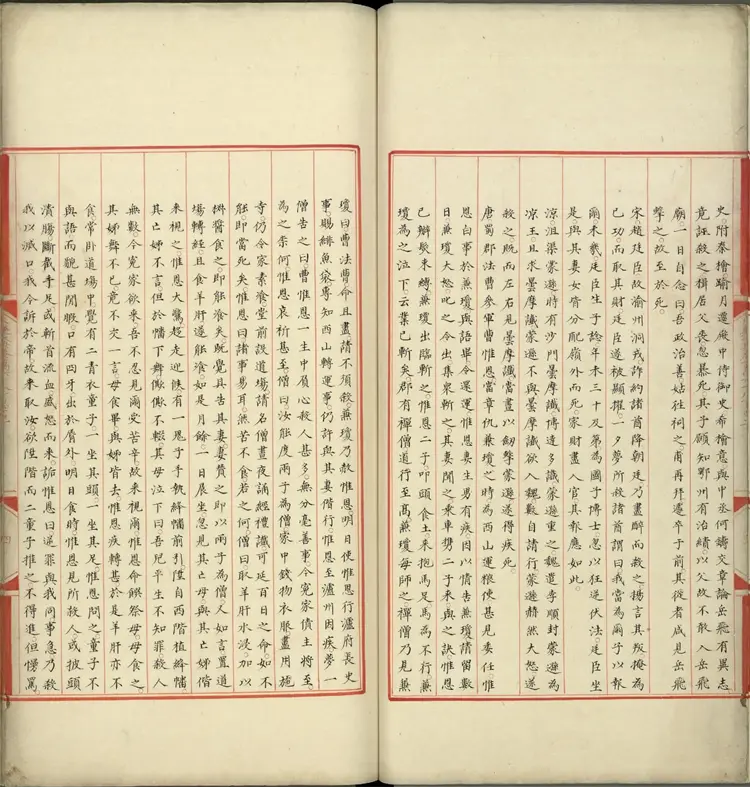 史附秦檜踰月遷殿中侍御史希檜意與中丞何鑄交章論岳飛有異志
竟誣殺之楫居父喪忽暴死其子願知鄂州有治績以父故不敢入岳飛
廟一日自念曰吾政治善姑往祠之甫再拜遽卒于前其從者咸見岳飛
擊之故至於死
宋趙廷臣故渝州洞戎詐約諸酋降朝廷乃盡醉而殺之揚言其叛掩為
己功而取其財廷臣遂被顯擢一夕夢所殺諸酋謂曰我當為爾子以報
爾未幾廷臣生子諗年未三十及第為國子博士忽以狂逆伏法廷臣坐
是與其妻女皆分配嶺外而死家財盡入官其報應如此
涼沮渠蒙遜時有沙門曇摩讖博達多識蒙遜重之魏遣李順封蒙遜為
涼王且求曇摩讖蒙遜不與曇摩讖欲入魏數自請行蒙遜赫然大怒遂
殺之既而左右見曇摩讖當晝以劒擊蒙遜遂得疾死
唐蜀郡法曹參軍曹惟思當章仇兼瓊之時為西山運糧使甚見委任惟
思白事於兼瓊與語畢令還運惟思妻生男有疾因以情告兼瓊請留數
日兼瓊大怒叱之令出集衆斬之其妻聞之乘車攜二子來與之訣惟思
已辮髪束縛兼瓊出臨斬之惟思二子叩頭食土来抱馬足馬為不行兼
瓊為之泣下云業已斬矣郡有禪僧道行至高兼瓊母師之禪僧乃見兼
瓊曰曹法曹命且盡請不須殺兼瓊乃赦惟思明日使惟思行瀘府長史
事賜緋魚袋專知西山轉運事仍許與其妻偕行惟思至瀘州因疾夢一
僧告之曰曹惟思一生中屠心殺人甚多無分毫善事今寃家債主將至
為之奈何惟思哀祈甚至僧曰汝能度兩子為僧家中錢物衣服盡用施
寺仍令家素飧堂前設道場請名僧晝夜誦經禮讖可延百日之命如不
能即當死矣惟思曰諸事易耳然苦不食若之何僧曰取羊肝水浸加以
椒醬食之即能飧矣既覺具告其妻妻贊之即以兩子為僧人如言置道
場轉經且食羊肝遂能飧如是月餘一日晨坐忽見其亡母與其亡姊偕
來視之惟思大驚趨走迎候有一鬼子手執絳幡前引陞自西階植絳幡
其亡姊不言但於幡下舞傞傞不輟其母泣下曰吾兒平生不知罪殺人
無數今寃家欲來吾不忍見爾受苦辛故来視爾惟思命饌祭母母食之
其姊舞不已竟不交一言母食畢與姊皆去惟思疾轉甚於是羊肝亦不
食常卧道場中覺有二青衣童子一坐其頭一坐其足惟思問之童子不
與語而貌甚閒暇口有四牙出於脣外明日食時惟思見所殺人或披頭
潰腸斷截手足或斬首流血盛怒而来詬惟思曰逆罪與我同事急乃殺
我以滅口我今訴於帝故來取汝欲陞階而二童子推之不得進但慢罵